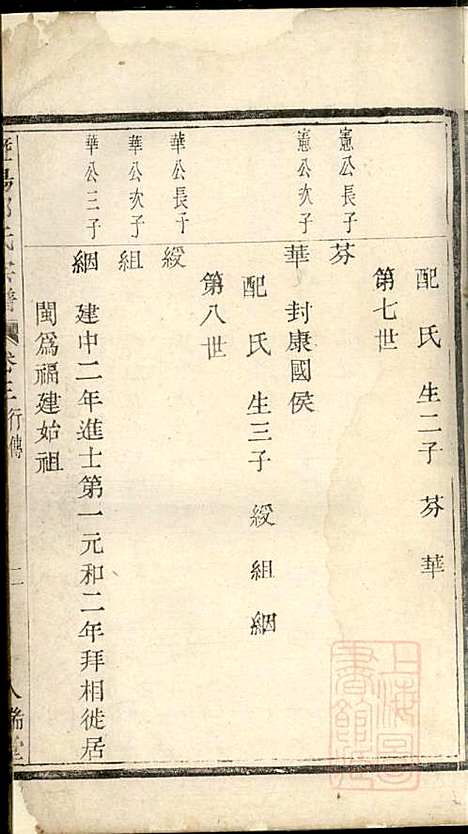 配氏生二子芬華
第七世
憲公長子 芬
憲公次子 華 封康國侯
配氏生三子綬組絪
第八世
華公長子 綬
華公次子 組
華公三子 絪 建中二年進士第一元和二年拜相徙居
閩為福建始祖
氏宗譜 卷三 行傳 二 人瑞堂
上海圖書館藏